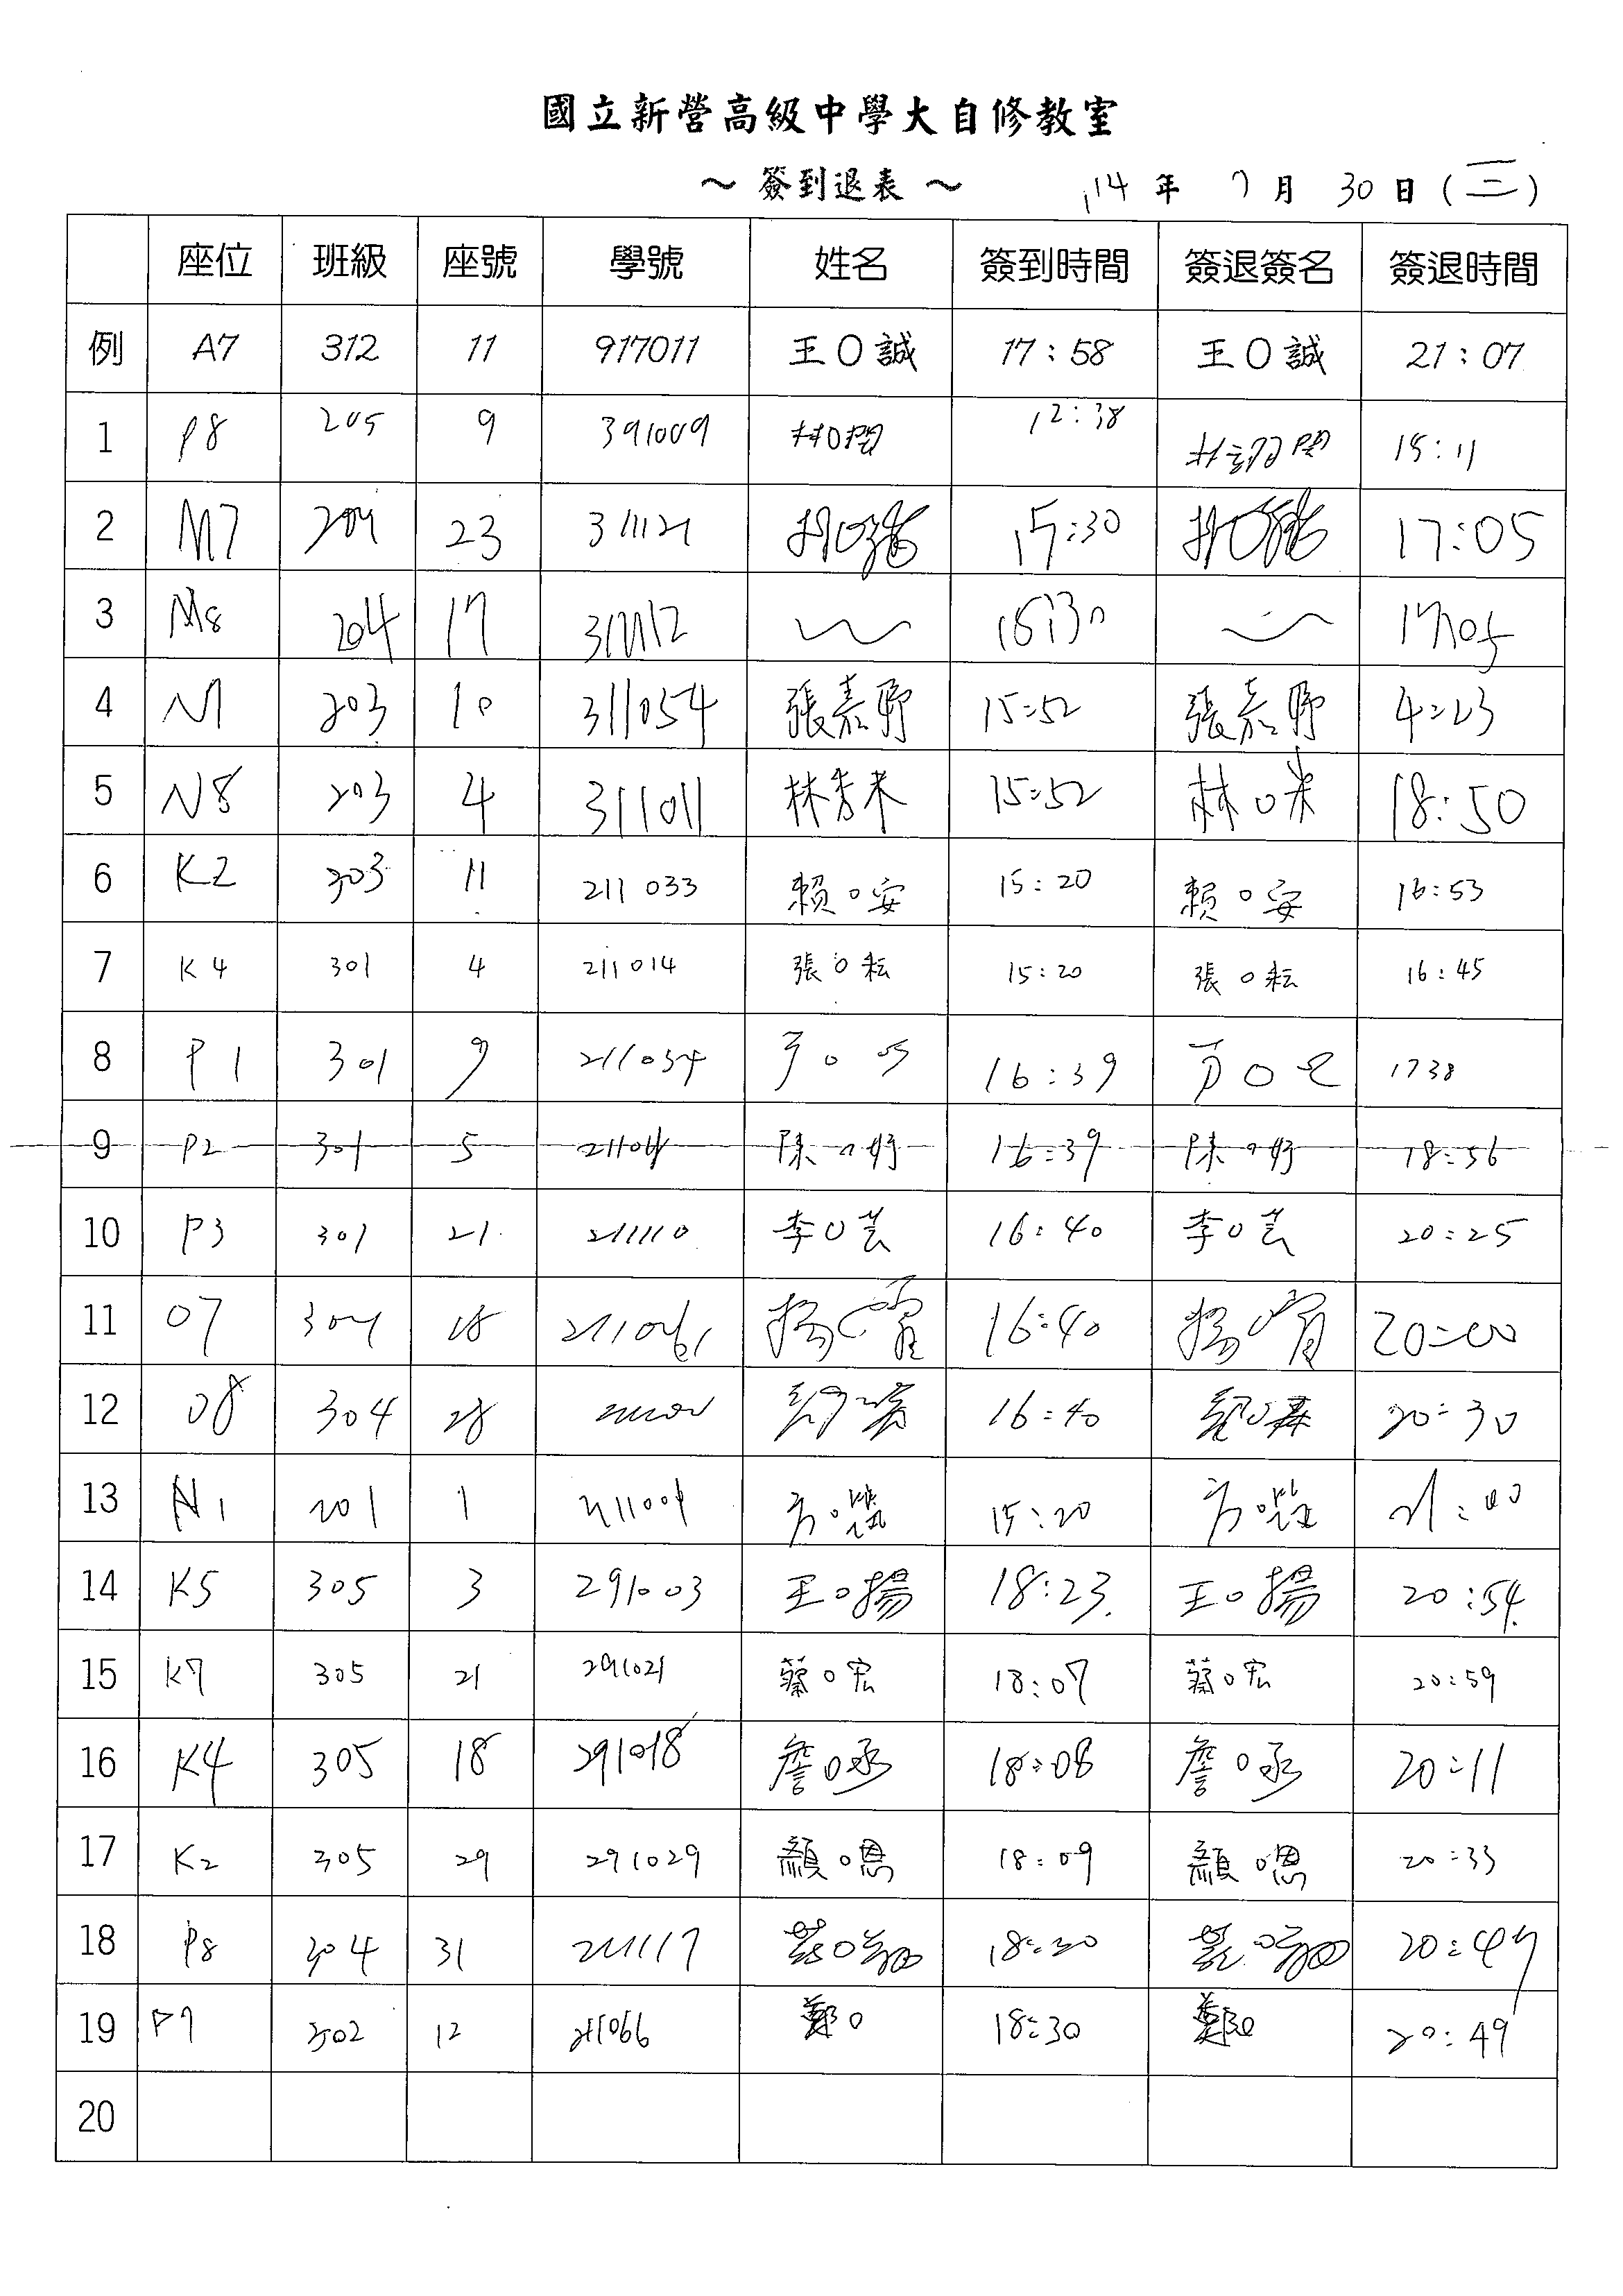 國立新營高級中學大自修教室
～ 簽到退表 ～ 114 年 7 月 30 日 (三)
座位 班級 座號 學號 姓名 簽到時間 簽退簽名 簽退時間
例 A7 312 11 917011 王〇誠 17:58 王〇誠 21:07
1 P8 205 9 391009 12:38 15:11
2 M7 204 23 311121 15:30 17:05
3 M8 204 17 17:05
4 203 10 311054 張嘉 15:52 張嘉 4:23
5 N8 203 4 311011 林 15:52 林〇 18:50
6 K2 303 11 211033 賴〇安 15:20 賴〇安 16:53
7 K4 301 4 211014 張〇耘 15:20 張〇耘 16:45
8 P1 301 9 211034 16:39 1738
9 P2 301 5 陳〇妤 16:39 陳〇妤 18:56
10 P3 301 21 211110 李〇芸 16:40 李〇芸 20:25
11 07 304 18 楊〇 16:40 楊〇 20:00
12 08 304 28 16:40 20:30
13 N1 201 1 方〇 15:20 方〇 21:00
14 K5 305 3 291003 王〇揚 18:23 王〇揚 20:54
15 K7 305 21 291021 蔡〇宏 18:07 蔡〇宏 20:59
16 K4 305 18 291018 詹〇丞 18:08 詹〇丞 20:11
17 K2 305 29 291029 顏〇恩 18:09 顏〇恩 20:33
18 P8 304 31 211117 18:30 20:49
19 P7 302 12 211066 鄭〇 18:30 鄭〇 20:49
20